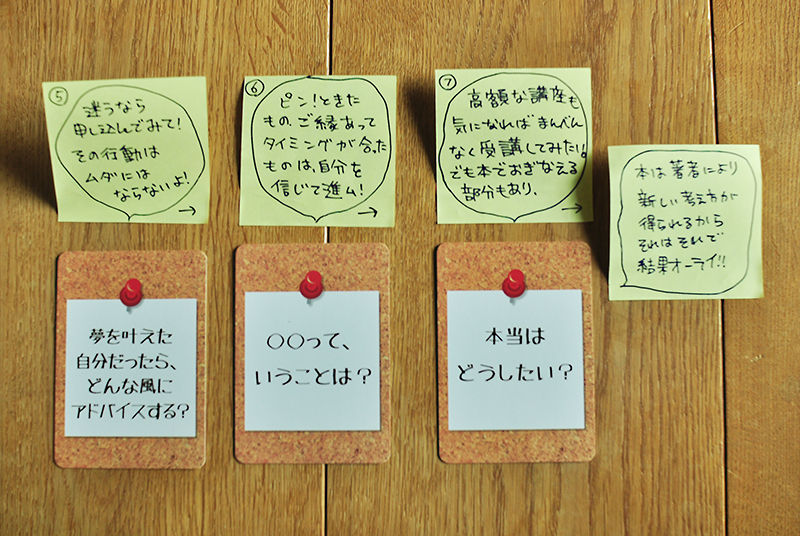 ⑤
迷うなら
申し込んでみて!
その行動は
ムダには
ならないよ!
→
夢を叶えた
自分だったら、
どんな風に
アドバイスする?
⑥
ピン!ときた
もの、ご縁あって
タイミングが合った
ものは、自分を
信じて進ム!
→
〇〇って、
いうことは?
⑦
高額な講座も
気になればまんべん
なく受講してみたい!
でも本でおぎなえる
部分もあり、
→
本当は
どうしたい?
本は著者により
新しい考え方が
得られるから
それはそれで
結果オーライ!!